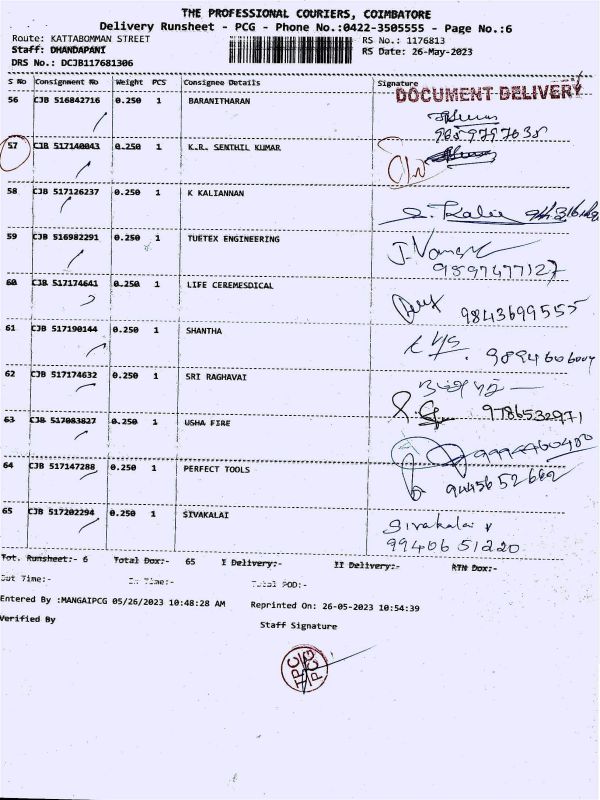 THE PROFESSIONAL COURIERS, COIMBATORE
Delivery Runsheet - PCG - Phone No.:0422-3505555 - Page No.:6
Route: KATTABOMMAN STREET
RS No.: 1176813
Staff: DHANDAPANI
RS Date: 26-May-2023
DRS No.: DCJB117681306
S No Consignment No Weight PCS Consignee Details Signature
DOCUMENT DELIVERY
56 CJB 516842716 0.250 1 BARANITHARAN
9859797638
57 CJB 517140043 0.250 1 K.R. SENTHIL KUMAR
58 CJB 517126237 0.250 1 K KALIANNAN
59 CJB 516982291 0.250 1 TUETEX ENGINEERING
9597477127
60 CJB 517174641 0.250 1 LIFE CEREMESDICAL
9843699555
61 CJB 517190144 0.250 1 SHANTHA
62 CJB 517174632 0.250 1 SRI RAGHAVAI
9786532971
63 CJB 517083827 0.250 1 USHA FIRE
64 CJB 517147288 0.250 1 PERFECT TOOLS
9445652662
65 CJB 517202294 0.250 1 SIVAKALAI
Sivakalai
9940651220
Tot. Runsheet:- 6 Total Dox:- 65 I Delivery:- II Delivery:- RTN Dox:-
Out Time:- In Time:- Total POD:-
Entered By :MANGAIPCG 05/26/2023 10:48:28 AM Reprinted On: 26-05-2023 10:54:39
Verified By
Staff Signature
TPC
PCG